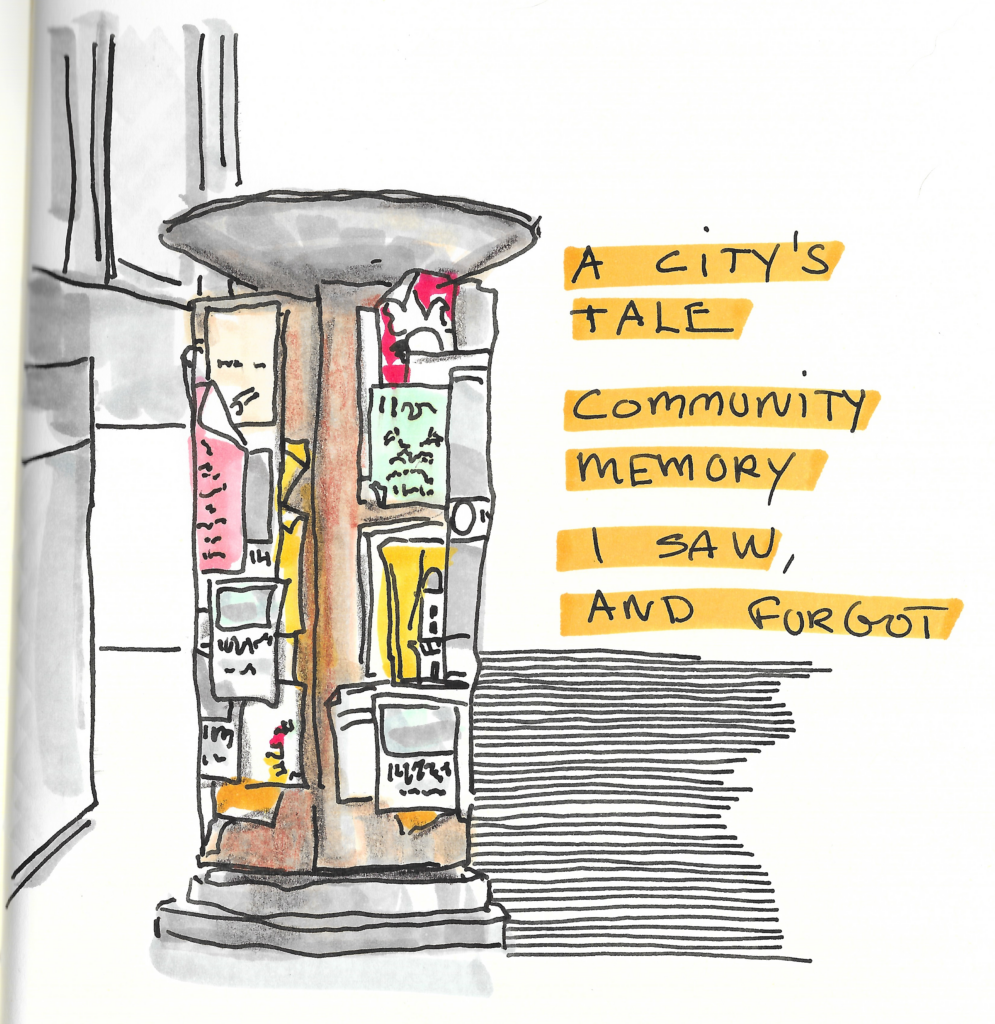 A CITY'S
TALE
COMMUNITY
MEMORY
I SAW,
AND FORGOT